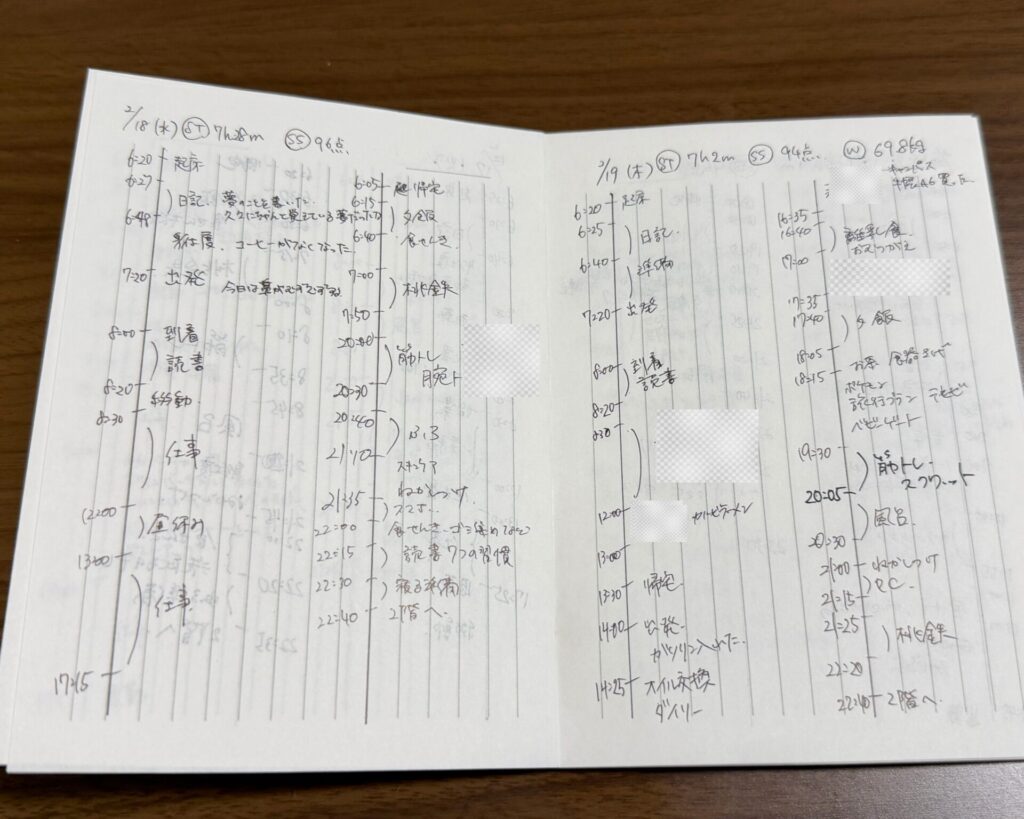 2/18 (水) ST 7h28m SS 96点
6:20 起床
6:27
日記 夢のことを書いた。
久々にちゃんと覚えている夢だった
6:49
身仕度. コーヒーがなくなった.
7:20 出発
8:00 到着
読書
8:20 移動
8:30
仕事
12:00
昼休み
13:00
仕事
17:15
6:05 帰宅
6:15
夕飯
6:40 食せんき.
7:00
7:50
20:00
筋トレ
腕ト
20:30
20:40
ふろ
21:10
スキンケア
21:35 ねかしつけ.
22:00 食せんき.
22:15 読書 7つの習慣
22:30
22:40 2階へ.
2/19 (木) ST 7h2m SS 94点 W 69.8kg
6:20 起床
6:25
日記.
6:40
準備
7:20 出発
8:00 到着
読書
8:20
8:30
12:00
13:00
13:30 帰宅.
14:00 出発.
ガソリン入れた.
14:25 オイル交換
ダイソー
キャンパス
16:35
16:40 離乳食.
おむつがえ
17:00
17:35
17:40
夕飯
18:05
18:15
ポケモン
旅行プラン
ベビーゲート
19:30
筋トレ.
スクワット
20:05
風呂.
20:30
21:00 ねかしつけ
21:15 PC.
21:25
22:20
22:40 2階へ.